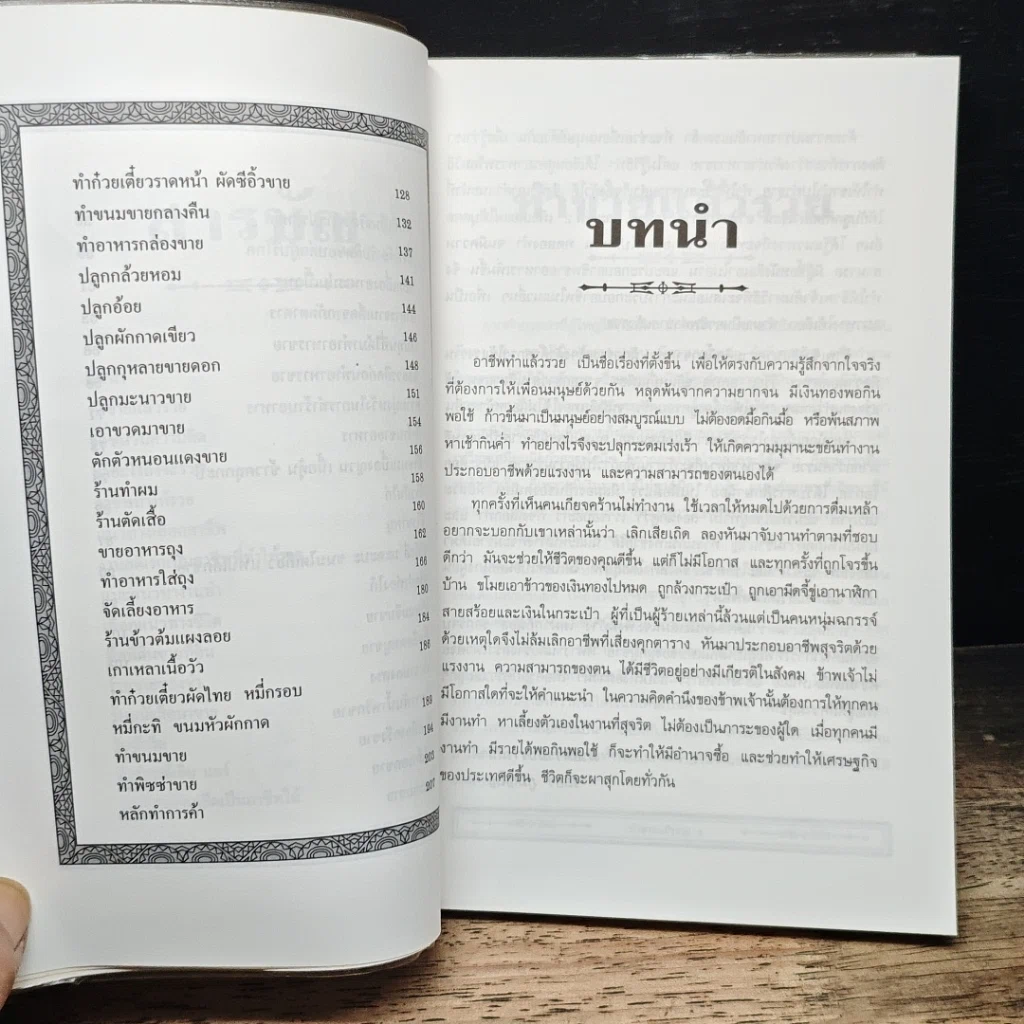 ทำก๋วยเตี๋ยวราดหน้า ผัดซีอิ้วขาย 128
ทำขนมขายกลางคืน 132
ทำอาหารกล่องขาย 137
ปลูกกล้วยหอม 141
ปลูกอ้อย 144
ปลูกผักกาดเขียว 146
ปลูกกุหลายขายดอก 148
ปลูกมะนาวขาย 151
เอาขวดมาขาย 154
ตักตัวหนอนแดงขาย 156
ร้านทำผม 158
ร้านตัดเสื้อ 160
ขายอาหารถุง 162
ทำอาหารใส่ถุง 166
จัดเลี้ยงอาหาร 180
ร้านข้าวต้มแผงลอย 184
เกาเหลาเนื้อวัว 186
ทำก๋วยเตี๋ยวผัดไทย หมี่กรอบ
หมี่กะทิ ขนมหัวผักกาด 189
ทำขนมขาย 194
ทำพิซซ่าขาย 203
หลักทำการค้า 207
บทนำ
อาชีพทำแล้วรวย เป็นชื่อเรื่องที่ตั้งขึ้น เพื่อให้ตรงกับความรู้สึกจากใจจริง
ที่ต้องการให้เพื่อนมนุษย์ด้วยกัน หลุดพ้นจากความยากจน มีเงินทองพอกิน
พอใช้ ก้าวขึ้นมาเป็นมนุษย์อย่างสมบูรณ์แบบ ไม่ต้องอดมื้อกินมื้อ หรือพ้นสภาพ
หาเช้ากินค่ำ ทำอย่างไรจึงจะปลุกระดมเร่งเร้า ให้เกิดความมุมานะขยันทำงาน
ประกอบอาชีพด้วยแรงงาน และความสามารถของตนเองได้
ทุกครั้งที่เห็นคนเกียจคร้านไม่ทำงาน ใช้เวลาให้หมดไปด้วยการดื่มเหล้า
อยากจะบอกกับเขาเหล่านั้นว่า เลิกเสียเถิด ลองหันมาจับงานทำตามที่ชอบ
ดีกว่า มันจะช่วยให้ชีวิตของคุณดีขึ้น แต่ก็ไม่มีโอกาส และทุกครั้งที่ถูกโจรขึ้น
บ้าน ขโมยเอาข้าวของเงินทองไปหมด ถูกล้วงกระเป๋า ถูกเอามีดจี้ขู่เอานาฬิกา
สายสร้อยและเงินในกระเป๋า ผู้ที่เป็นผู้ร้ายเหล่านี้ล้วนแต่เป็นคนหนุ่มฉกรรจ์
ด้วยเหตุใดจึงไม่ล้มเลิกอาชีพที่เสี่ยงคุกตาราง หันมาประกอบอาชีพสุจริตด้วย
แรงงาน ความสามารถของตน ได้มีชีวิตอยู่อย่างมีเกียรติในสังคม ข้าพเจ้าไม่
มีโอกาสใดที่จะให้คำแนะนำ ในความคิดคำนึงของข้าพเจ้านั้นต้องการให้ทุกคน
มีงานทำ หาเลี้ยงตัวเองในงานที่สุจริต ไม่ต้องเป็นภาระของผู้ใด เมื่อทุกคนมี
งานทำ มีรายได้พอกินพอใช้ ก็จะทำให้มีอำนาจซื้อ และช่วยทำให้เศรษฐกิจ
ของประเทศดีขึ้น ชีวิตก็จะผาสุกโดยทั่วกัน